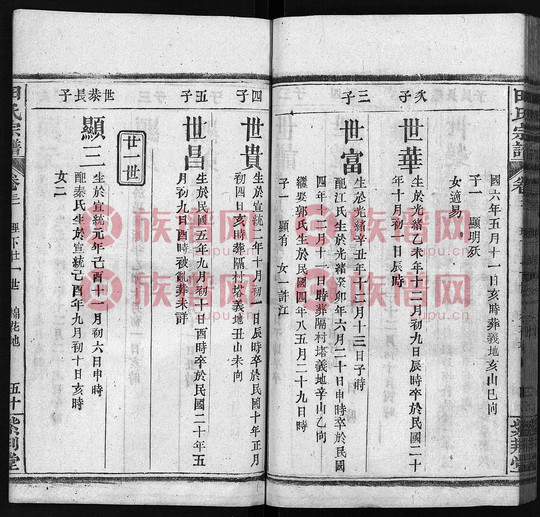 國六年五月十一日亥時葬義地亥山巳向
子一 顯明殀
女適易
次子
世華
生於光緒乙未年十二月初九日辰時卒於民國二十
年十月初二日辰時
三子
世富
生於光緒辛丑年十二月十三日子時
配江氏生於光緒癸卯年六月二十日申時卒於民國
四年五月十一日時葬隔村塔義地辛山乙向
繼娶郭氏生於民國四年八五月二十九日時
子一 顯有 女一許江
四子
世貴
生於宣統二年十月初一日辰時卒於民國十年正月
初四日亥時葬隔村塔義地丑山未向
五子
世昌
生於民國五年九月初十日酉時卒於民國二十年五
月初九日酉時被亂葬未詳
廿一世
世恭長子
顯三
生於宣統元年己酉十一月初六日申時
配秦氏生於宣統己酉年九月初十日亥時
女二
田氏宗譜
卷三
世
棉花地
五十
紫荊堂
田氏宗譜
族谱网